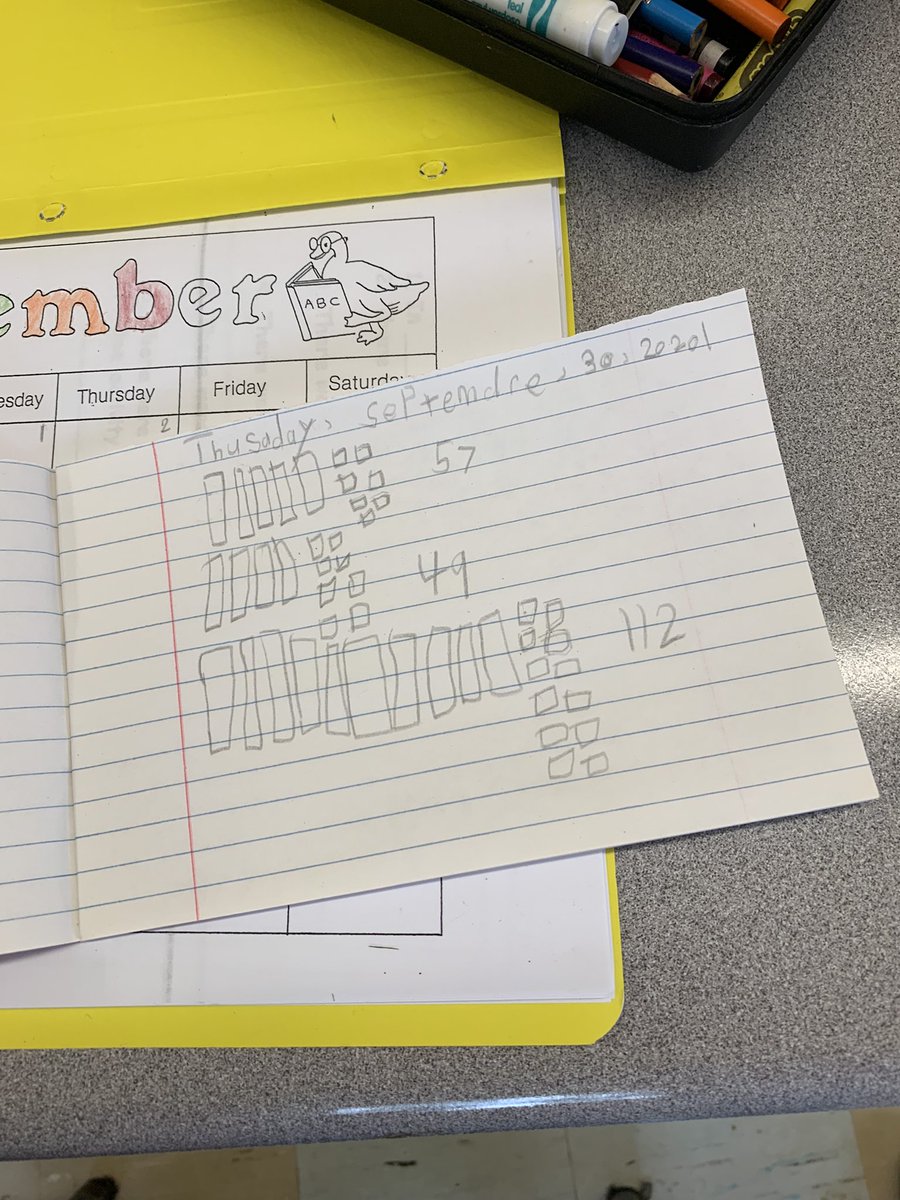 Teal
ember
ABC
esday Thursday Friday Saturday
1 2
Thusaday, septemdre, 30, 20201
57
49
112